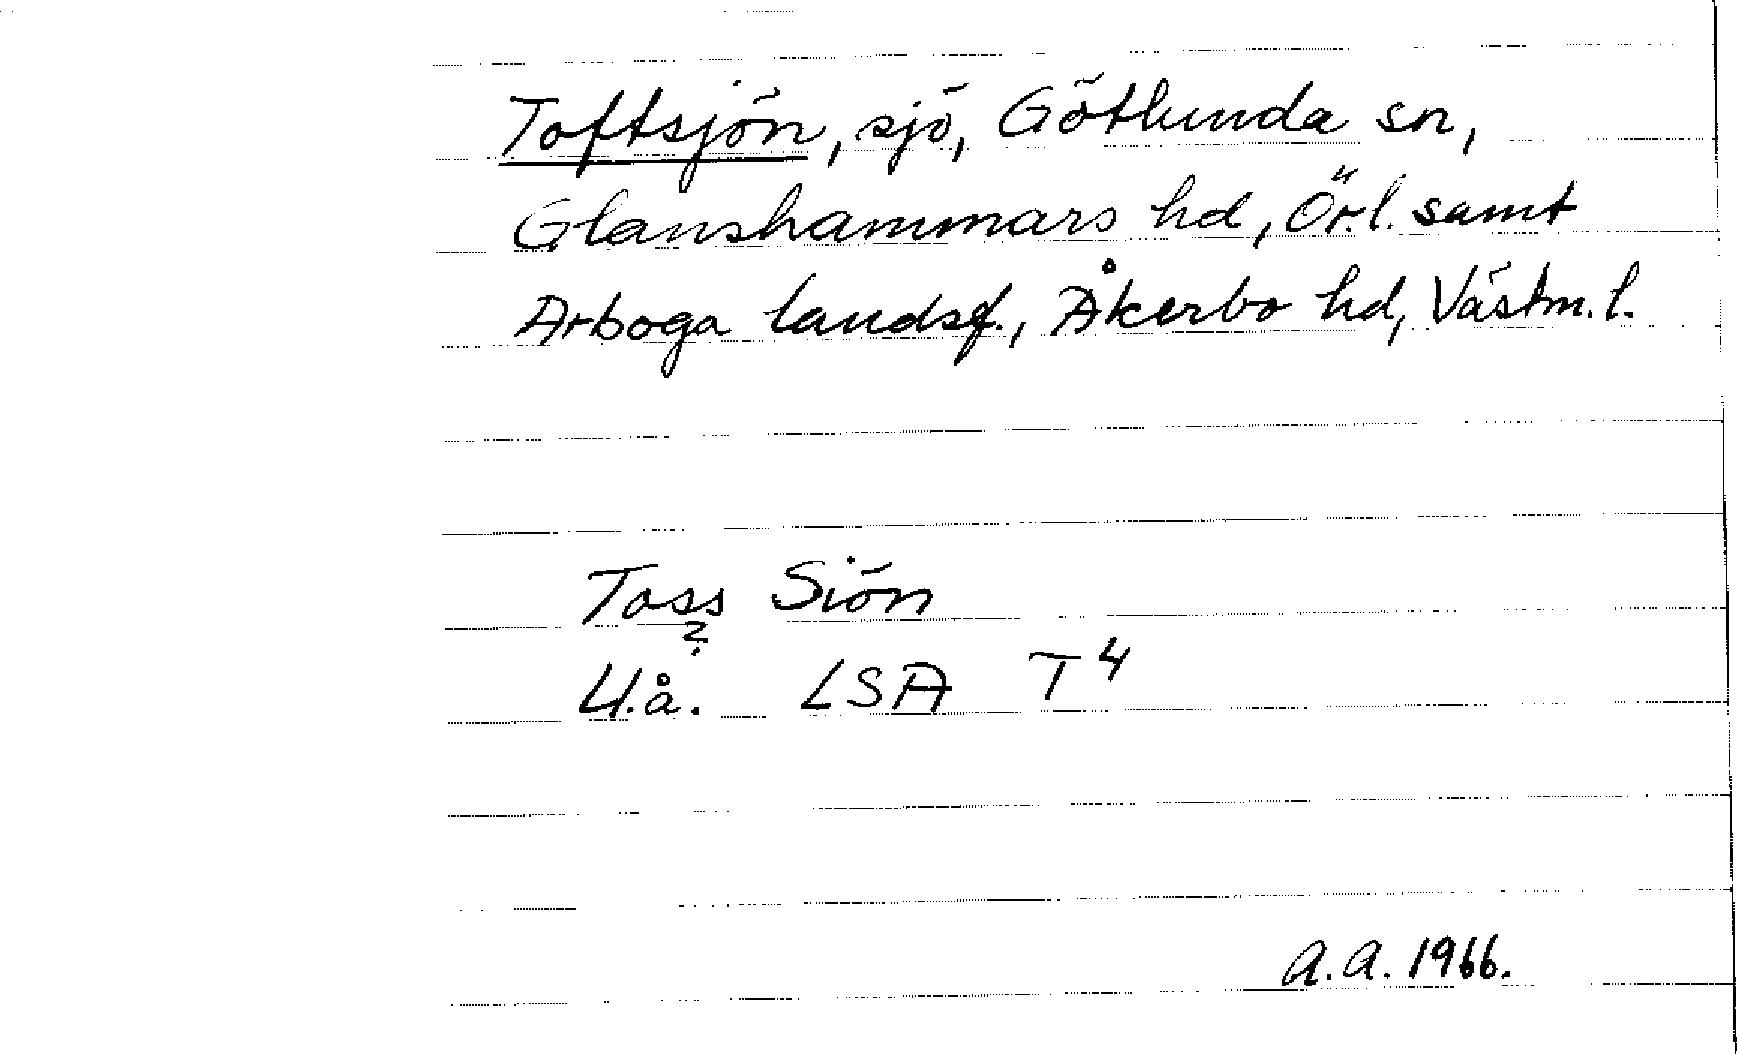 Toftsjön, sjö, Götlunda sn,
Glanshammars hd, Ör.l. samt
Arboga landsf., Åkerbo hd, Västm.l.
Toss Siön
?
U.å. LSA T4
A.A. 1966.